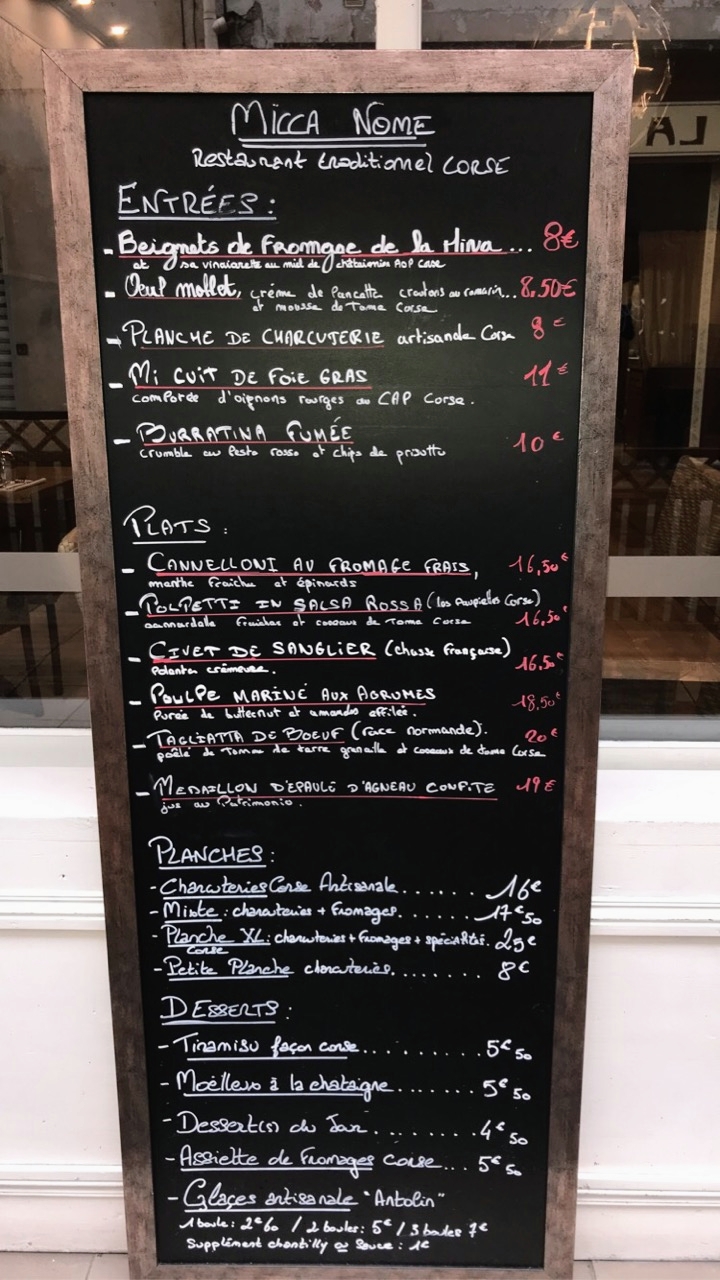 MICCA NOME
Restaurant traditionnel CORSE
ENTRÉES :
- Beignets de Fromage de la Mina ... 8€
et sa vinaigrette au miel de châtaignier AOP Corse
- Oeuf mollet, crème de Pancetta croutons au romarin... 8.50€
et mousse de Tome Corse
- PLANCHE DE CHARCUTERIE artisanale Corse 8€
- MI CUIT DE FOIE GRAS 11€
comporée d'oignons rouges au CAP Corse.
- BURRATINA FUMÉE 10€
crumble au Pesto rosso et chips de prosuttu
PLATS :
- CANNELLONI AU FROMAGE FRAIS, 16,50€
menthe fraîche et épinards
- POLPETTI IN SALSA ROSSA (les Paupielles Corse)
fraîches et copeaux de Tome Corse 16,50€
- CIVET DE SANGLIER (chasse française)
Polenta crémeuse. 16,50€
- POULPE MARINÉ AUX AGRUMES 18,50€
Purée de butternut et amandes effilée.
- TAGLIATTA DE BOEUF (race normande). 20€
poêlé de Pomme de terre grenaille et copeaux de tome Corse
- MEDAILLON D'EPAULE D'AGNEAU CONFITE 19€
jus au Patrimonio.
PLANCHES :
- Charcuteries Corse Artisanale...... 16€
- Mixte : charcuteries + Fromages...... 17€50
- Planche XL : charcuteries + fromages + spécialités. 25€
Corse
- Petite Planche charcuteries........ 8€
DESSERTS :
- Tiramisu façon corse.......... 5€50
- Moëlleux à la chataigne....... 5€50
- Dessert(s) du Jour......... 4€50
- Assiette de Fromages Corse... 5€50
- Glaçes artisanale "Antolin"
1 boule : 2€60 / 2 boules : 5€ / 3 boules 7€
Supplément chantilly ou sauce : 1€
LA